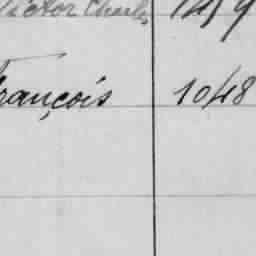 Victor Charles
François 1048